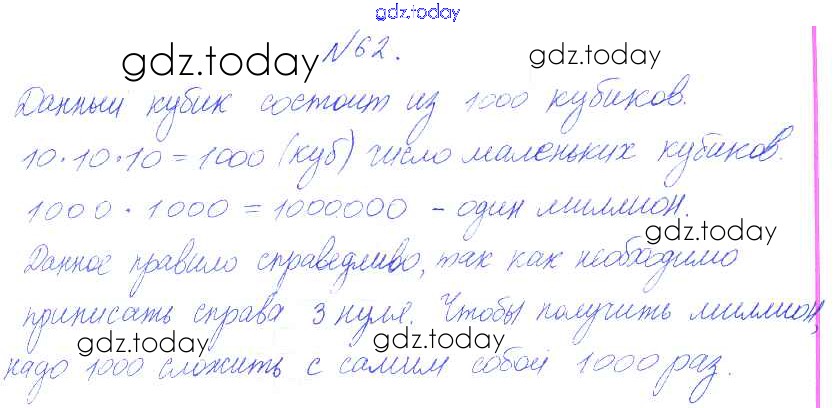 gdz.today
№62.
gdz.today
gdz.today
Данный кубик состоит из 1000 кубиков.
10·10·10=1000 (куб) число маленьких кубиков.
1000·1000=1000000 - один миллион.
gdz.today
Данное правило справедливо, так как необходимо
приписать справа 3 нуля. Чтобы получить миллион,
gdz.today
gdz.today
надо 1000 сложить с самим собой 1000 раз.